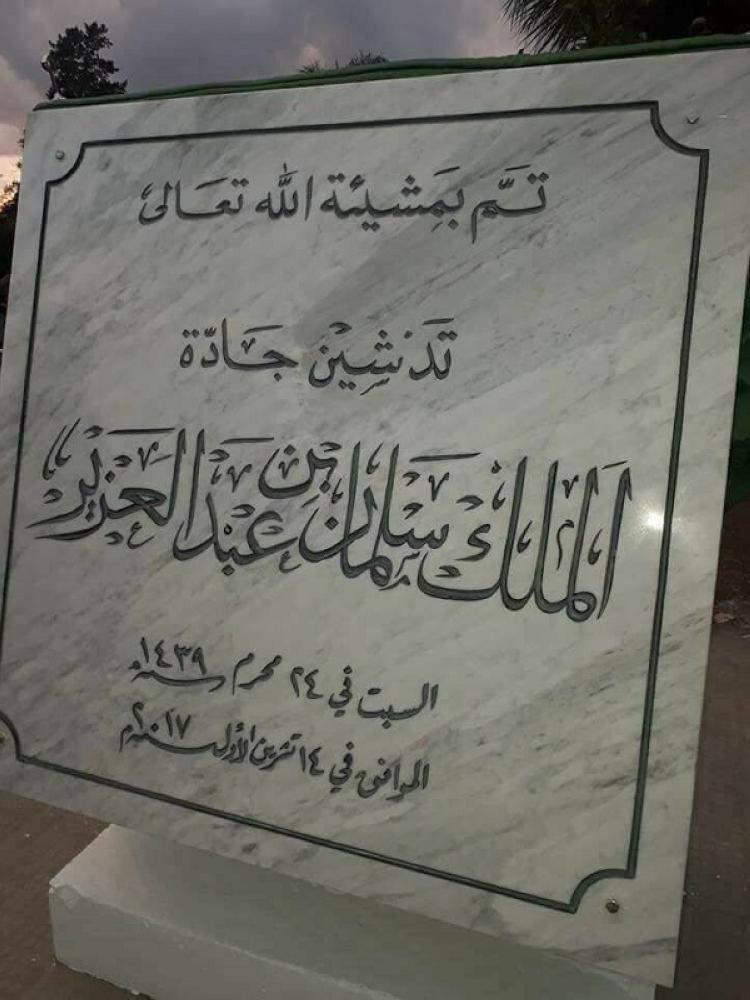 تَمَّ بِمَشيئة الله تعَالىٰ
تَدشِين جَادّة
الملك سَلمان بن عَبد العَزيز
السبت في ٢٤ محرم سنة ١٤٣٩
الموافق في ١٤ تشرين الأول سنة ٢٠١٧م